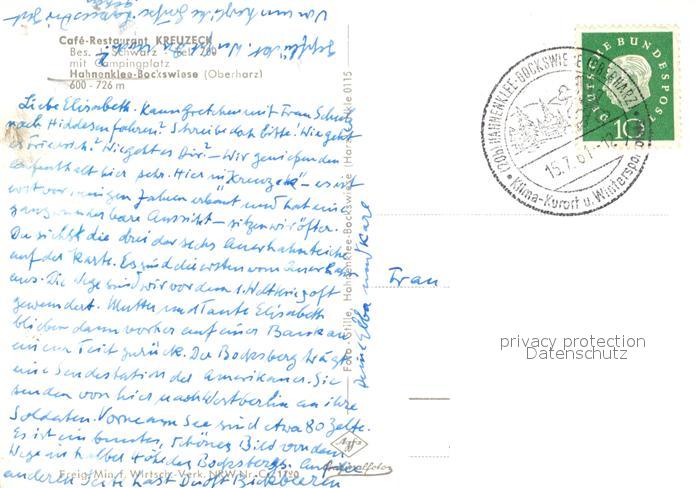 Café-Restaurant KREUZECK
Bes. Schwarz
mit Campingplatz
Hahnenklee-Bockswiese (Oberharz)
600 - 726 m
Liebe Elisabeth. Kann Gretchen mit Frau Schulz
nach Hiddesen fahren? Schreibe das bitte. Wie geht
es Friedrich? Wie geht es Dir? - Wir genießen den
Aufenthalt hier sehr. Hier im „Kreuzeck" - es ist
erst vor wenigen Jahren erbaut und hat eine
ganz wunderbare Aussicht - sitzen wir öfter.
Du siehst die drei der sechs Auerhahnteiche
auf der Karte. Es sind die ersten vom
aus. Die Wege sind wir vor dem 1. Weltkrieg oft
gewandert. Mutter und Tante Elisabeth
blieben dann vorher auf einer Bank an
einem Teich zurück. Der Bocksberg trägt
eine Sendestation der Amerikaner. Sie
senden von hier nach Westberlin an ihre
Soldaten. Vorne am See sind etwa 80 Zelte.
Es ist ein buntes, schönes Bild von dem
Wege in halber Höhe des Bocksbergs. Auf der
anderen Seite hast Du oft Bickbeeren
gepflückt.
Von uns herzliche Grüße
Deine Elba und Karl
Foto - Grille, Hahnenklee-Bockswiese (Harz)
0115
Agfa
Freig. Min. f. Wirtsch. Verk. NRW Nr.
Frau
DEUTSCHE BUNDESPOST
10
HAHNENKLEE-BOCKSWIESE (OBERHARZ)
15.7.61-12
Klima-Kurort u. Wintersport
privacy protection
Datenschutz